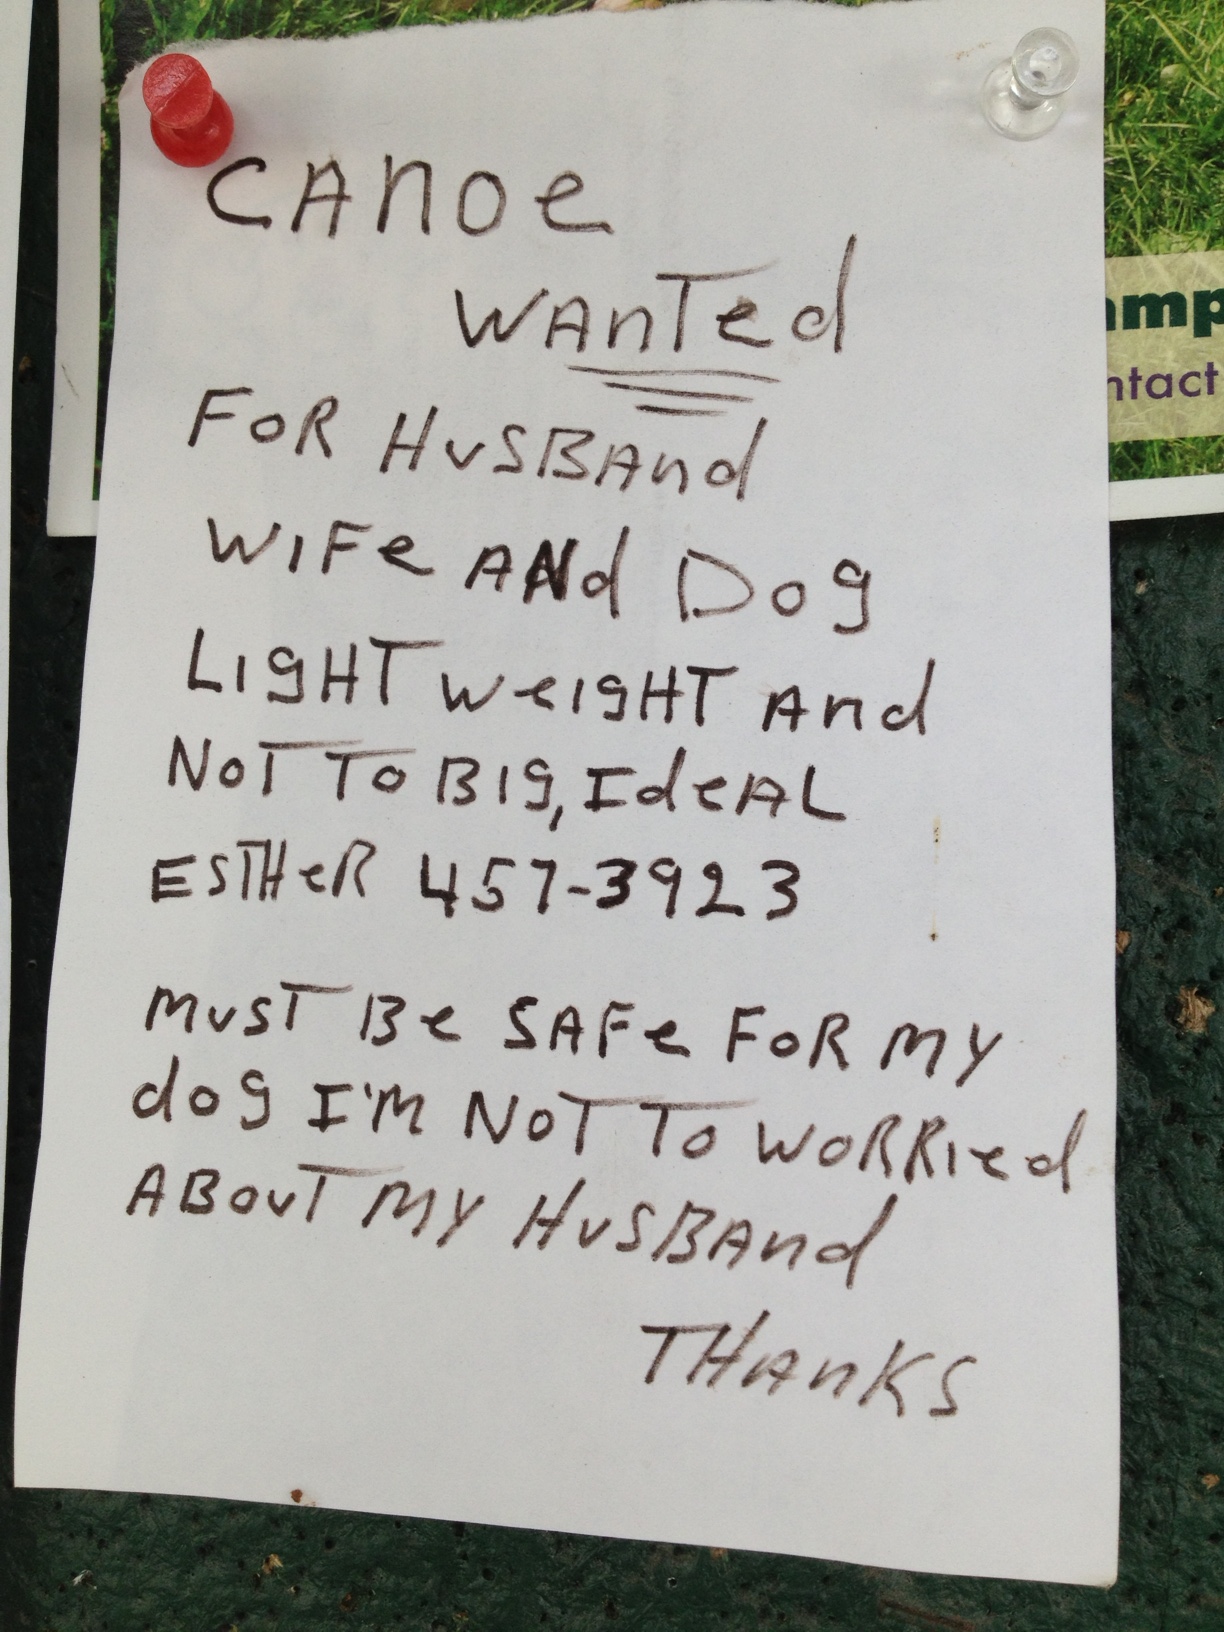 CANOE
WANTED
FOR HUSBAND
WIFE AND DOG
LIGHT WEIGHT AND
NOT TO BIG, IDEAL
ESTHER 457-3923
MUST BE SAFE FOR MY
dog I'M NOT TO WORRIED
ABOUT MY HUSBAND
THANKS
amp
ntact